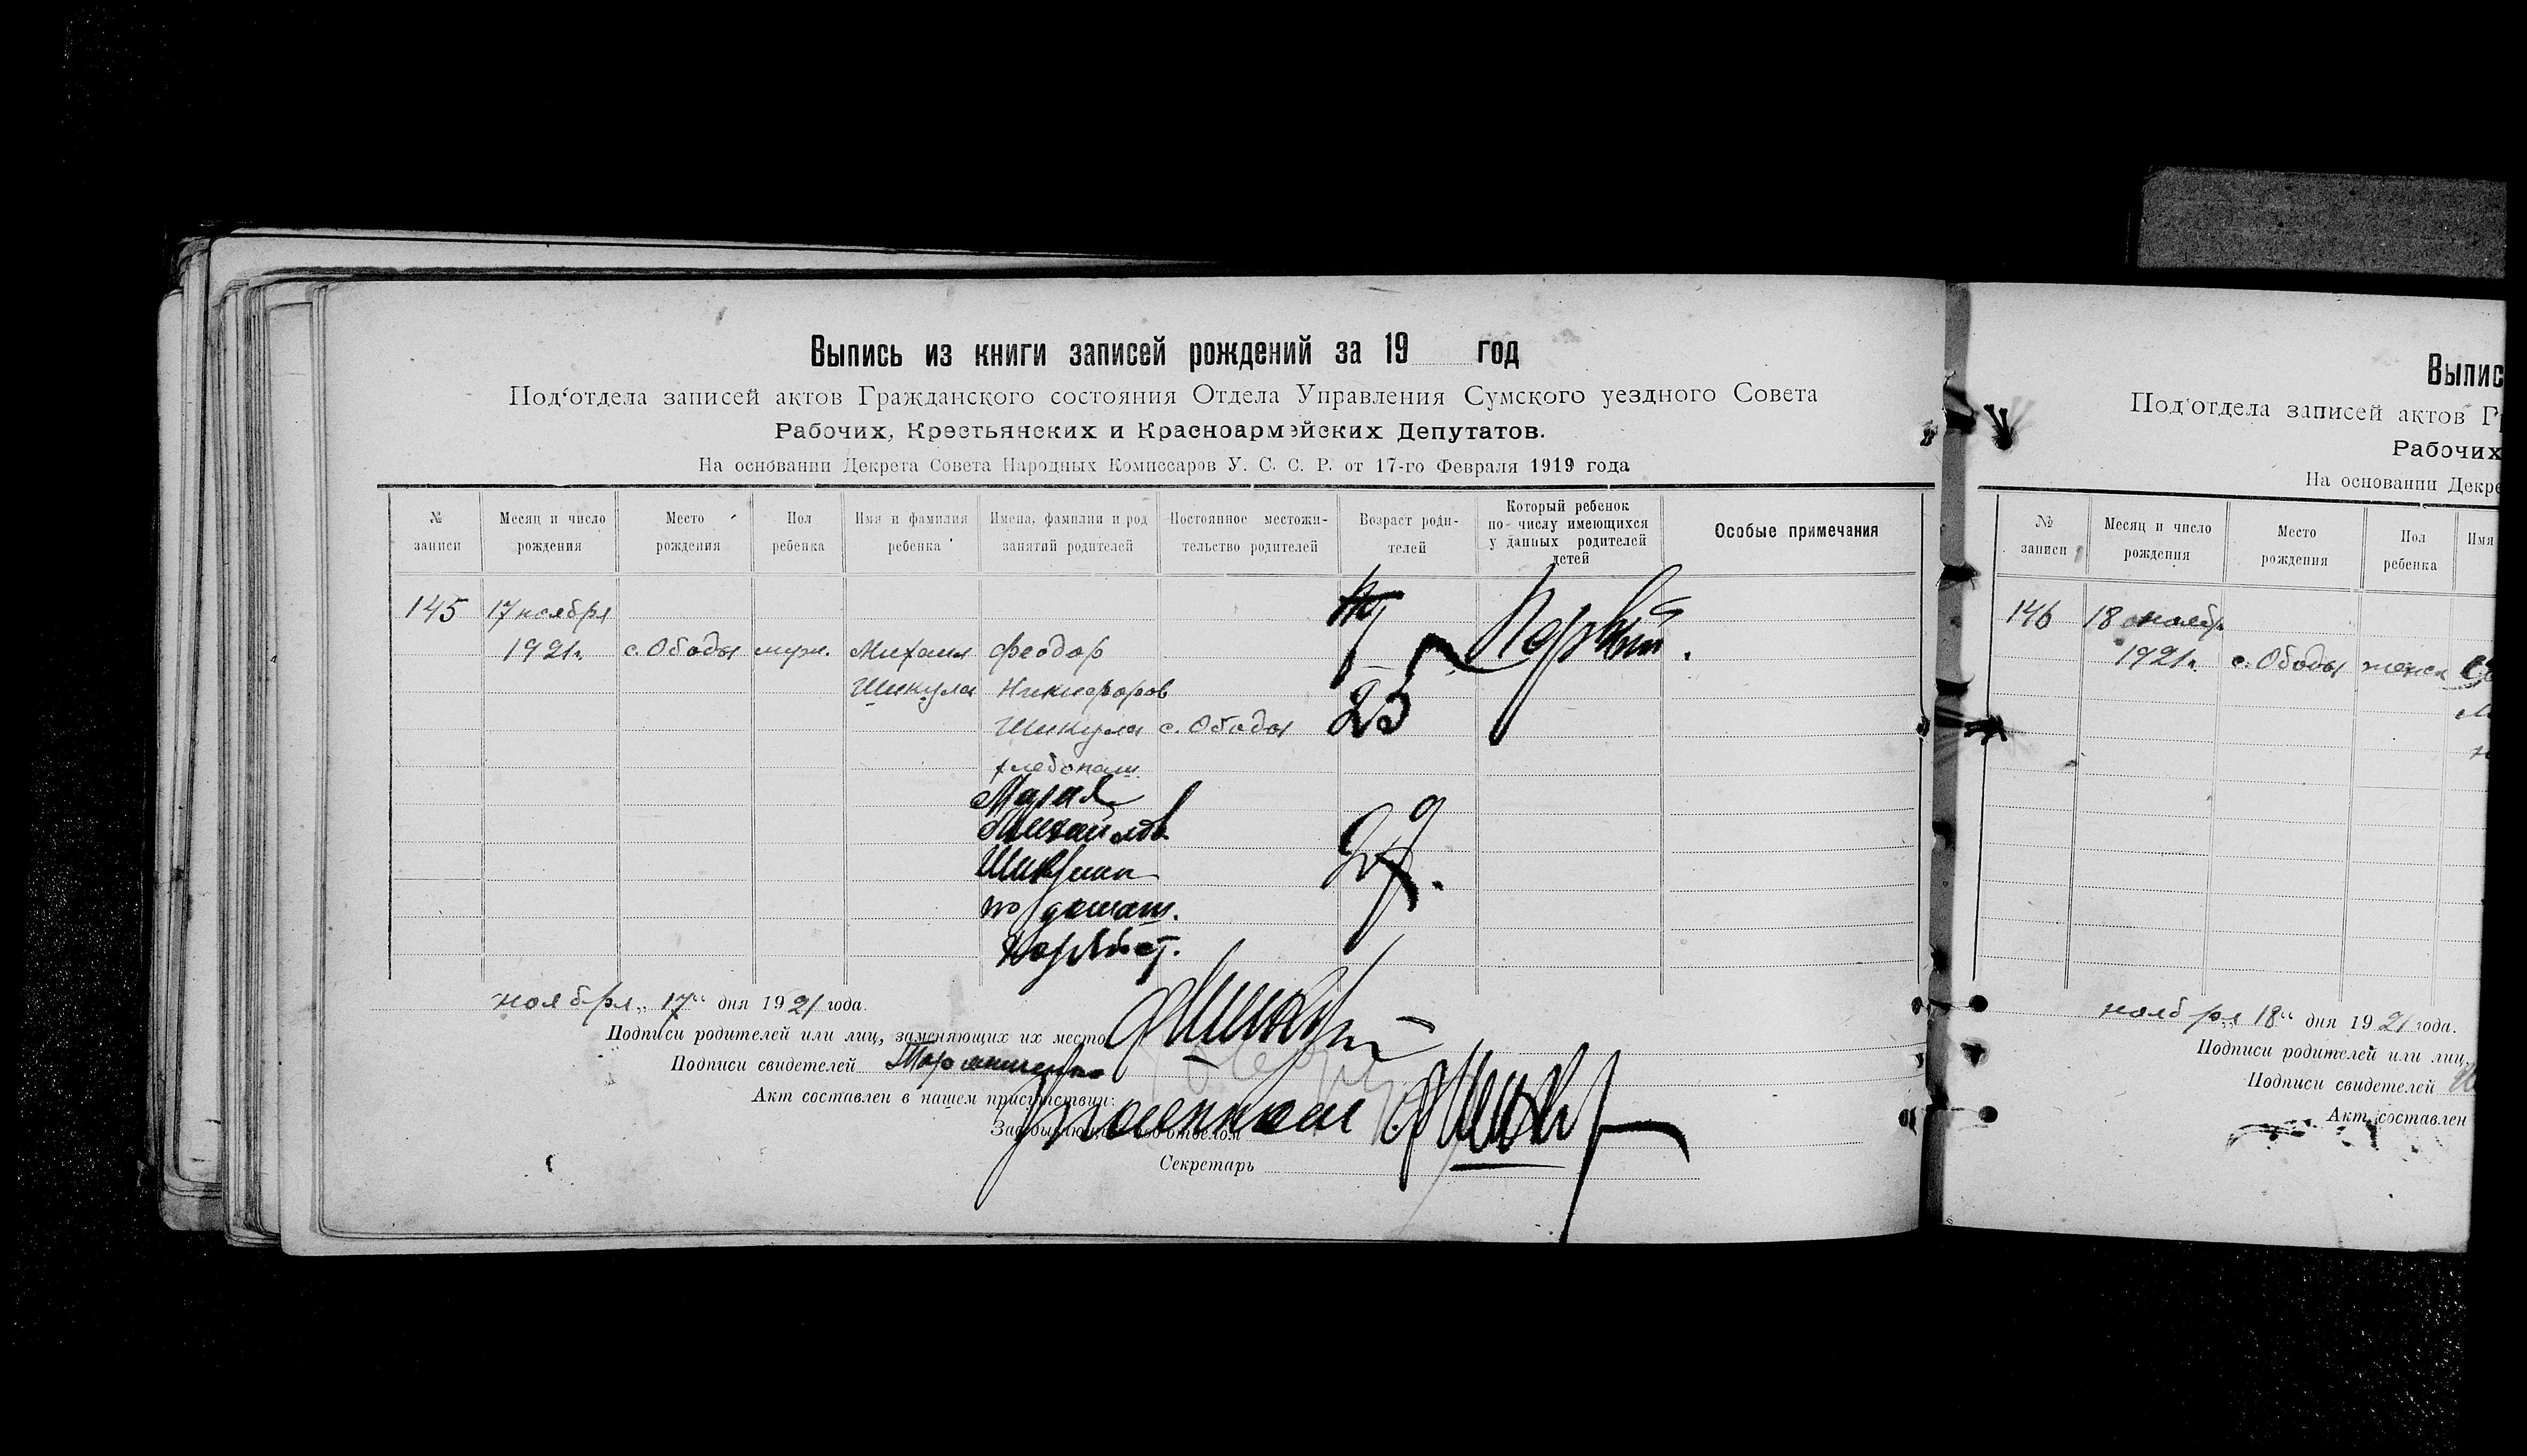 Выпись из книги записей рождений за 19 год
Под‘отдела записей актов Гражданского состояния Отдела Управления Сумского уездного Совета
Рабочих, Крестьянских и Красноармейских Депутатов.
На основании Декрета Совета Народных Комиссаров У. С. С. Р. от 17-го Февраля 1919 года
№ записи
Месяц и число рождения
Место рождения
Пол ребенка
Имя и фамилия ребенка
Имена, фамилии и род занятий родителей
Постоянное местожительство родителей
Возраст родителей
Который ребенок по числу имеющихся у данных родителей детей
Особые примечания
145 17 ноября
1921г. с. Ободы муж. Михаил Феодор Первый.
Шикула Никифоров
Шикула с. Ободы 25
хлебопаш.
Мария
Михайлов
по домаш.
ноября „17“ дня 1921 года.
Подписи родителей или лиц, заменяющих их место
Подписи свидетелей
Акт составлен в нашем присутствии:
Заведывающий Под‘отделом
Секретарь
Выпис
Под‘отдела записей актов Г
Рабочих
На основании Декре
№ записи
Месяц и число рождения
Место рождения
Пол ребенка
Имя
146 18 ноябр
1921г. с. Ободы женск
ноября 18“ дня 1921 года.
Подписи родителей или лиц,
Подписи свидетелей
Акт составлен